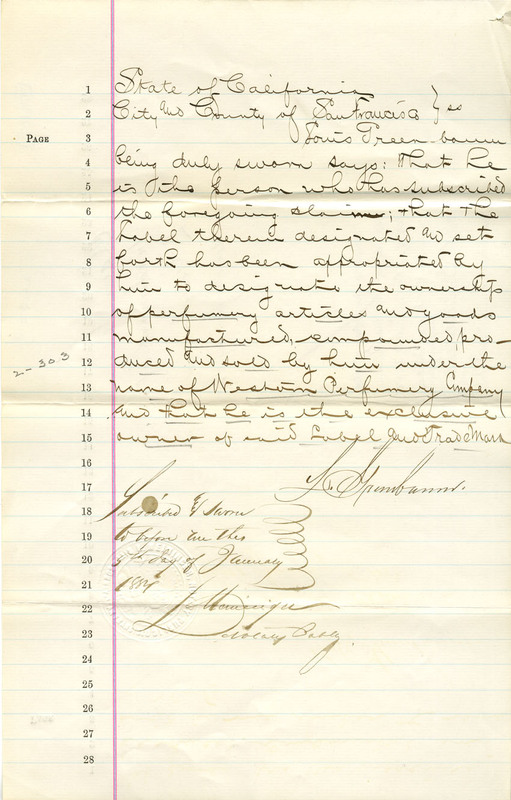 1 State of California
2 City and County of San Francisco } ss
PAGE 3 Louis Greenbaum
4 being duly sworn says: That he
5 is the person who has subscribed
6 the foregoing claim; that the
7 Label therein designated and set
8 forth has been appropriated by
9 him to designate the ownership
10 of perfumery articles and goods
11 manufactured, compounded, pro-
2-303 12 duced and sold by him under the
13 name of Western Perfumery Company
14 and that he is the exclusive
15 owner of said Label and Trade Mark
16
17 L. Greenbaum.
18 Subscribed & Sworn
19 to before me this
20 day of January
21
22
23 Notary Public
24
25
26
27
28